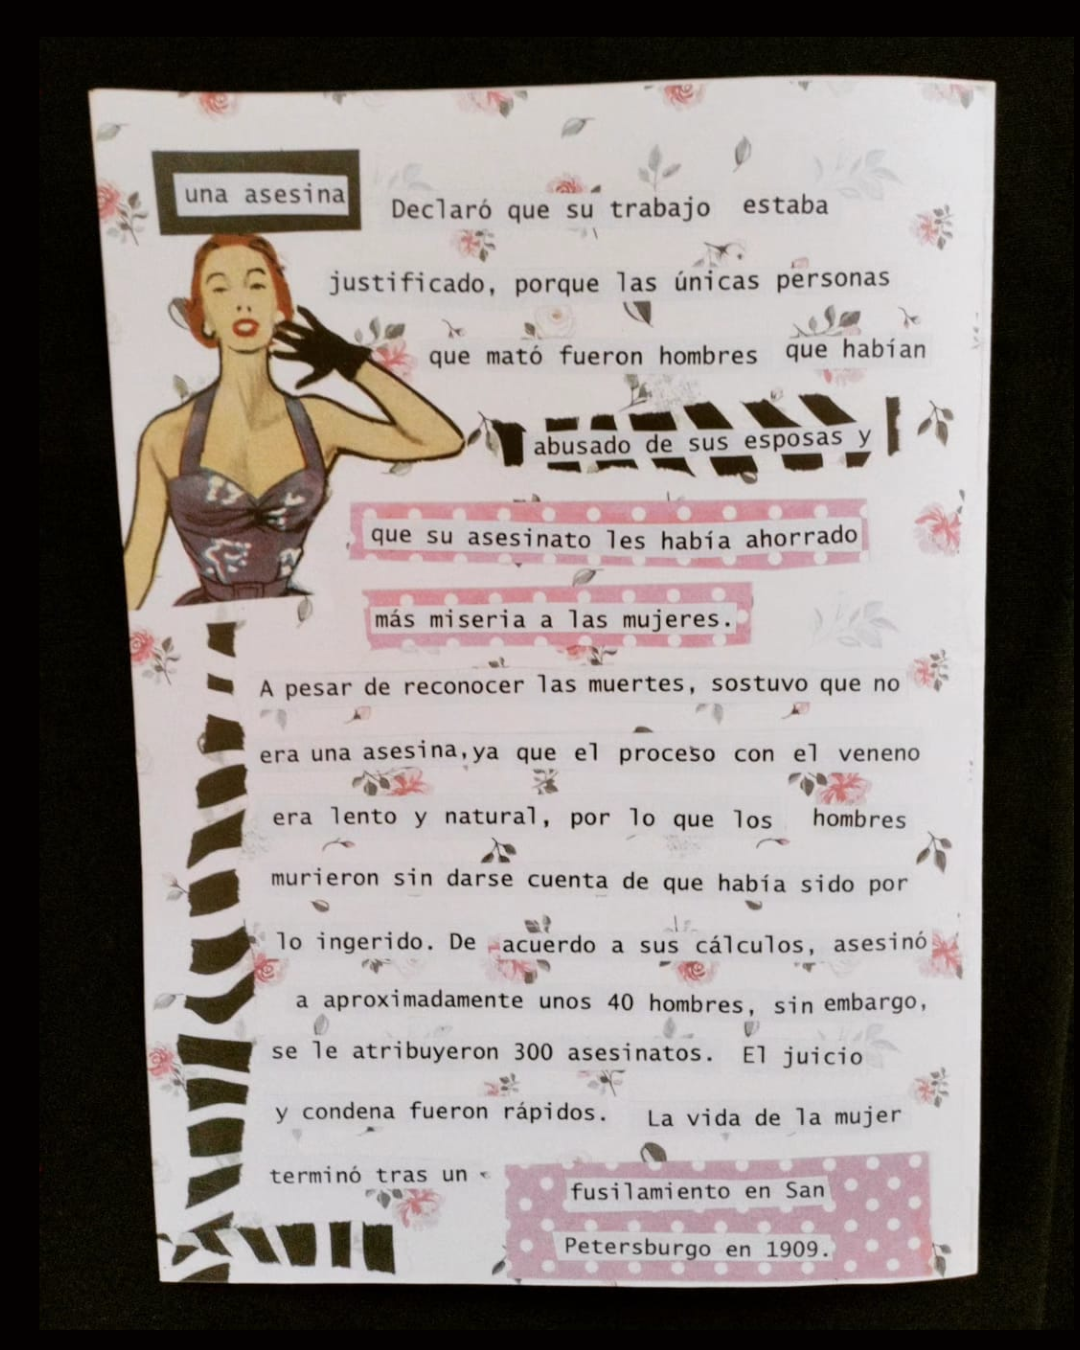 una asesina
Declaró que su trabajo estaba
justificado, porque las únicas personas
que mató fueron hombres que habían
abusado de sus esposas y
que su asesinato les había ahorrado
más miseria a las mujeres.
A pesar de reconocer las muertes, sostuvo que no
era una asesina, ya que el proceso con el veneno
era lento y natural, por lo que los hombres
murieron sin darse cuenta de que había sido por
lo ingerido. De acuerdo a sus cálculos, asesinó
a aproximadamente unos 40 hombres, sin embargo,
se le atribuyeron 300 asesinatos. El juicio
y condena fueron rápidos. La vida de la mujer
terminó tras un
fusilamiento en San
Petersburgo en 1909.